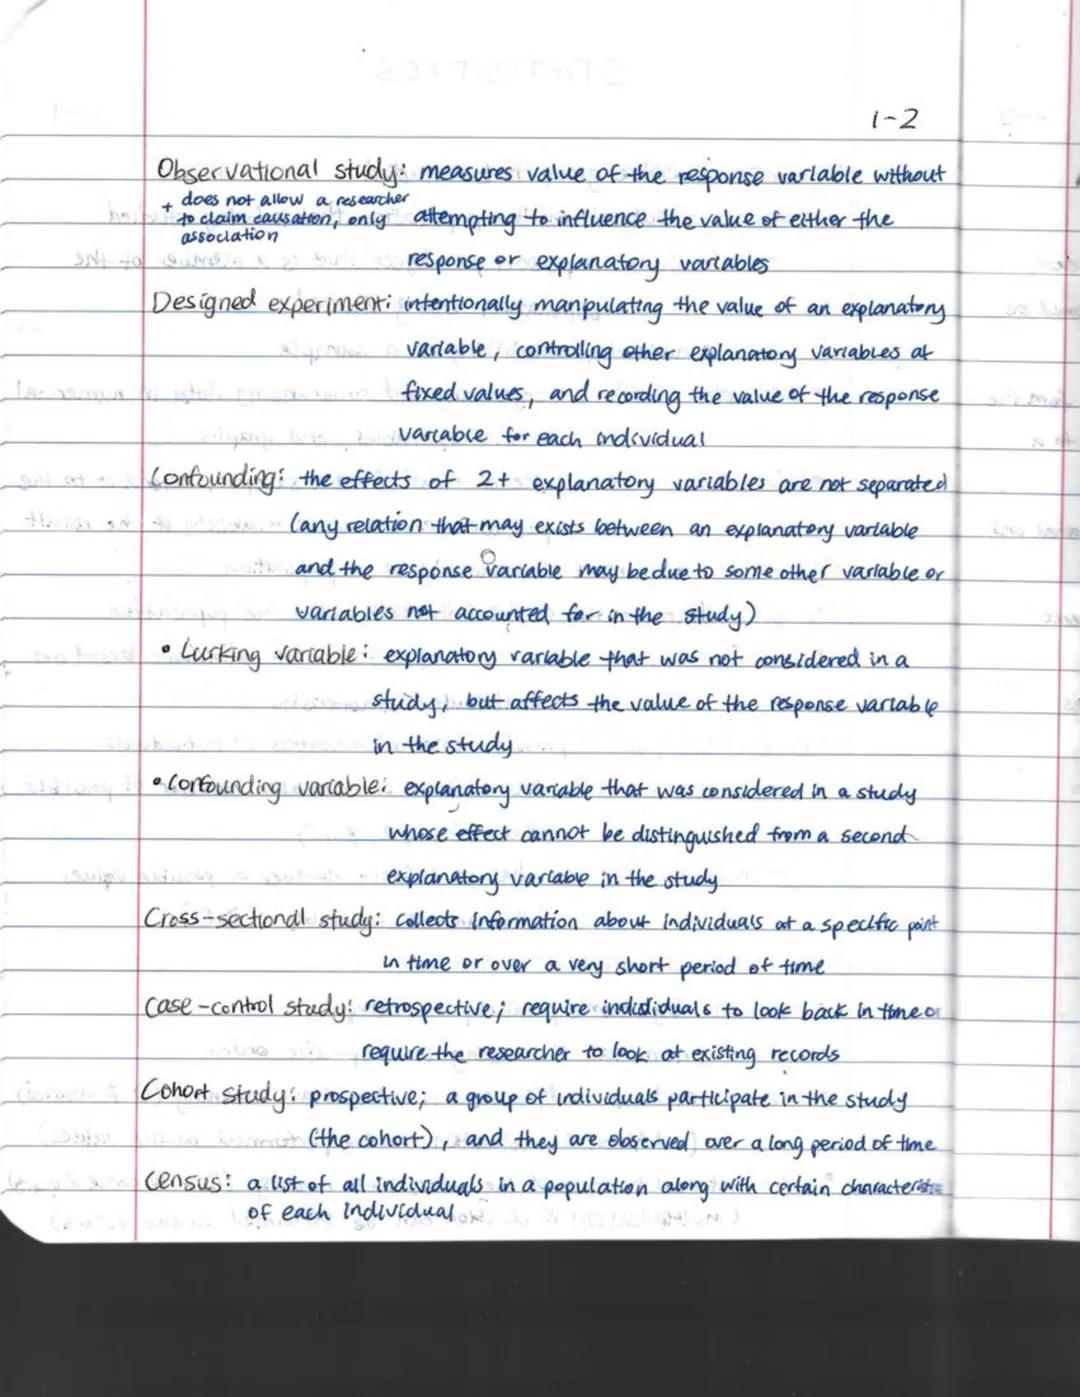 1-2
Observational study: measures value of the response variable without
+ does not allow a researcher
to claim causation, only attempting to influence the value of either the
association
response or explanatory variables
Designed experiment: intentionally manipulating the value of an explanatory
variable, controlling other explanatory variables at
fixed values, and recording the value of the response
variable for each individual
Confounding: the effects of 2+ explanatory variables are not separated
(any relation that may exists between an explanatory variable
and the response variable may be due to some other variable or
variables not accounted for in the study)
• Lurking variable: explanatory variable that was not considered in a
study, but affects the value of the response variable
in the study
• Confounding variable: explanatory variable that was considered in a study
whose effect cannot be distinguished from a second
explanatory variable in the study
Cross-sectional study: collects information about individuals at a specific point
in time or over a very short period of time
Case-control study: retrospective; require individiduals to look back in time or
require the researcher to look at existing records
Cohort study: prospective; a group of individuals participate in the study
(the cohort), and they are observed over a long period of time
Census: a list of all individuals in a population along with certain characteristics
of each individual